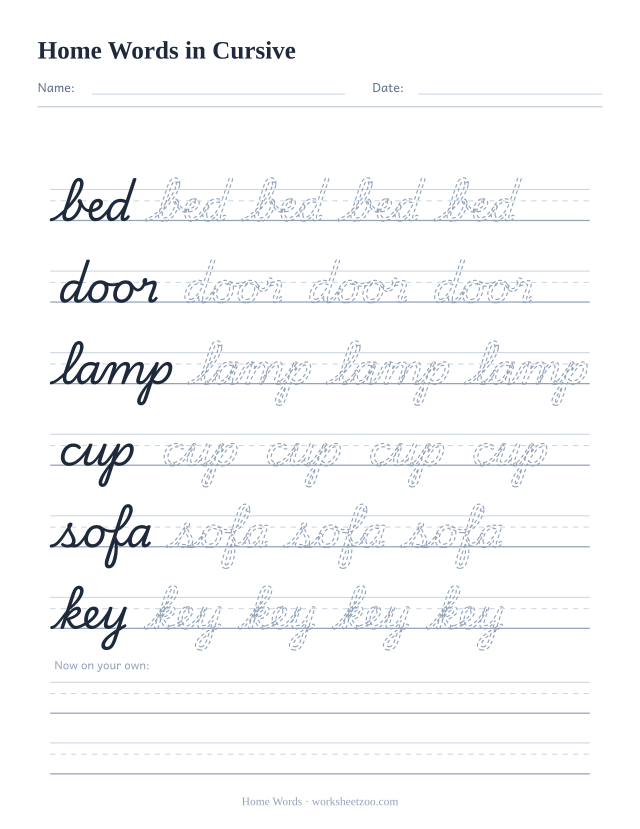 Home Words in Cursive
Name: Date:
bed bed bed bed bed
door door door door
lamp lamp lamp lamp
cup cup cup cup cup
sofa sofa sofa sofa
key key key key key
Now on your own:
Home Words · worksheetzoo.com